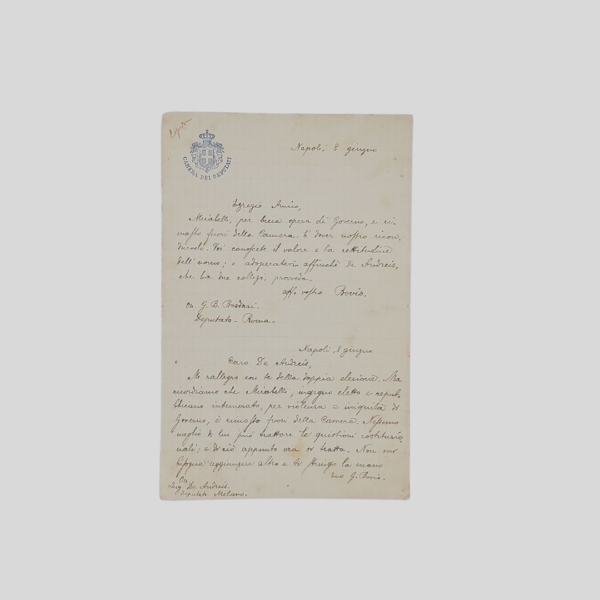 CAMERA DEI DEPUTATI
Napoli, 8 giugno
Egregio Amico,
Mirabelli, per bieca opera di Governo, è ri-
masto fuori della Camera. È dover nostro ricon-
durvelo. Voi conoscete il valore e la rettitudine
dell'uomo; e adoperatevi affinché De Andreis,
che ha due collegi, provveda.
aff. vostro Bovio.
On. G. B.
Deputato - Roma.
Napoli, 8 giugno
Caro De Andreis,
Mi rallegro con te della doppia elezione. Ma
ricordiamo che Mirabelli, ingegno eletto e repub-
blicano intemerato, per violenza e iniquità di
Governo, è rimasto fuori della Camera. Nessuno
meglio di lui può trattare le quistioni costituzio-
nali; e di ciò appunto ora si tratta. Non mi
bisogna aggiungere altro e ti stringo la mano
tuo G. Bovio.
On.
Ing. De Andreis
Deputato Milano.